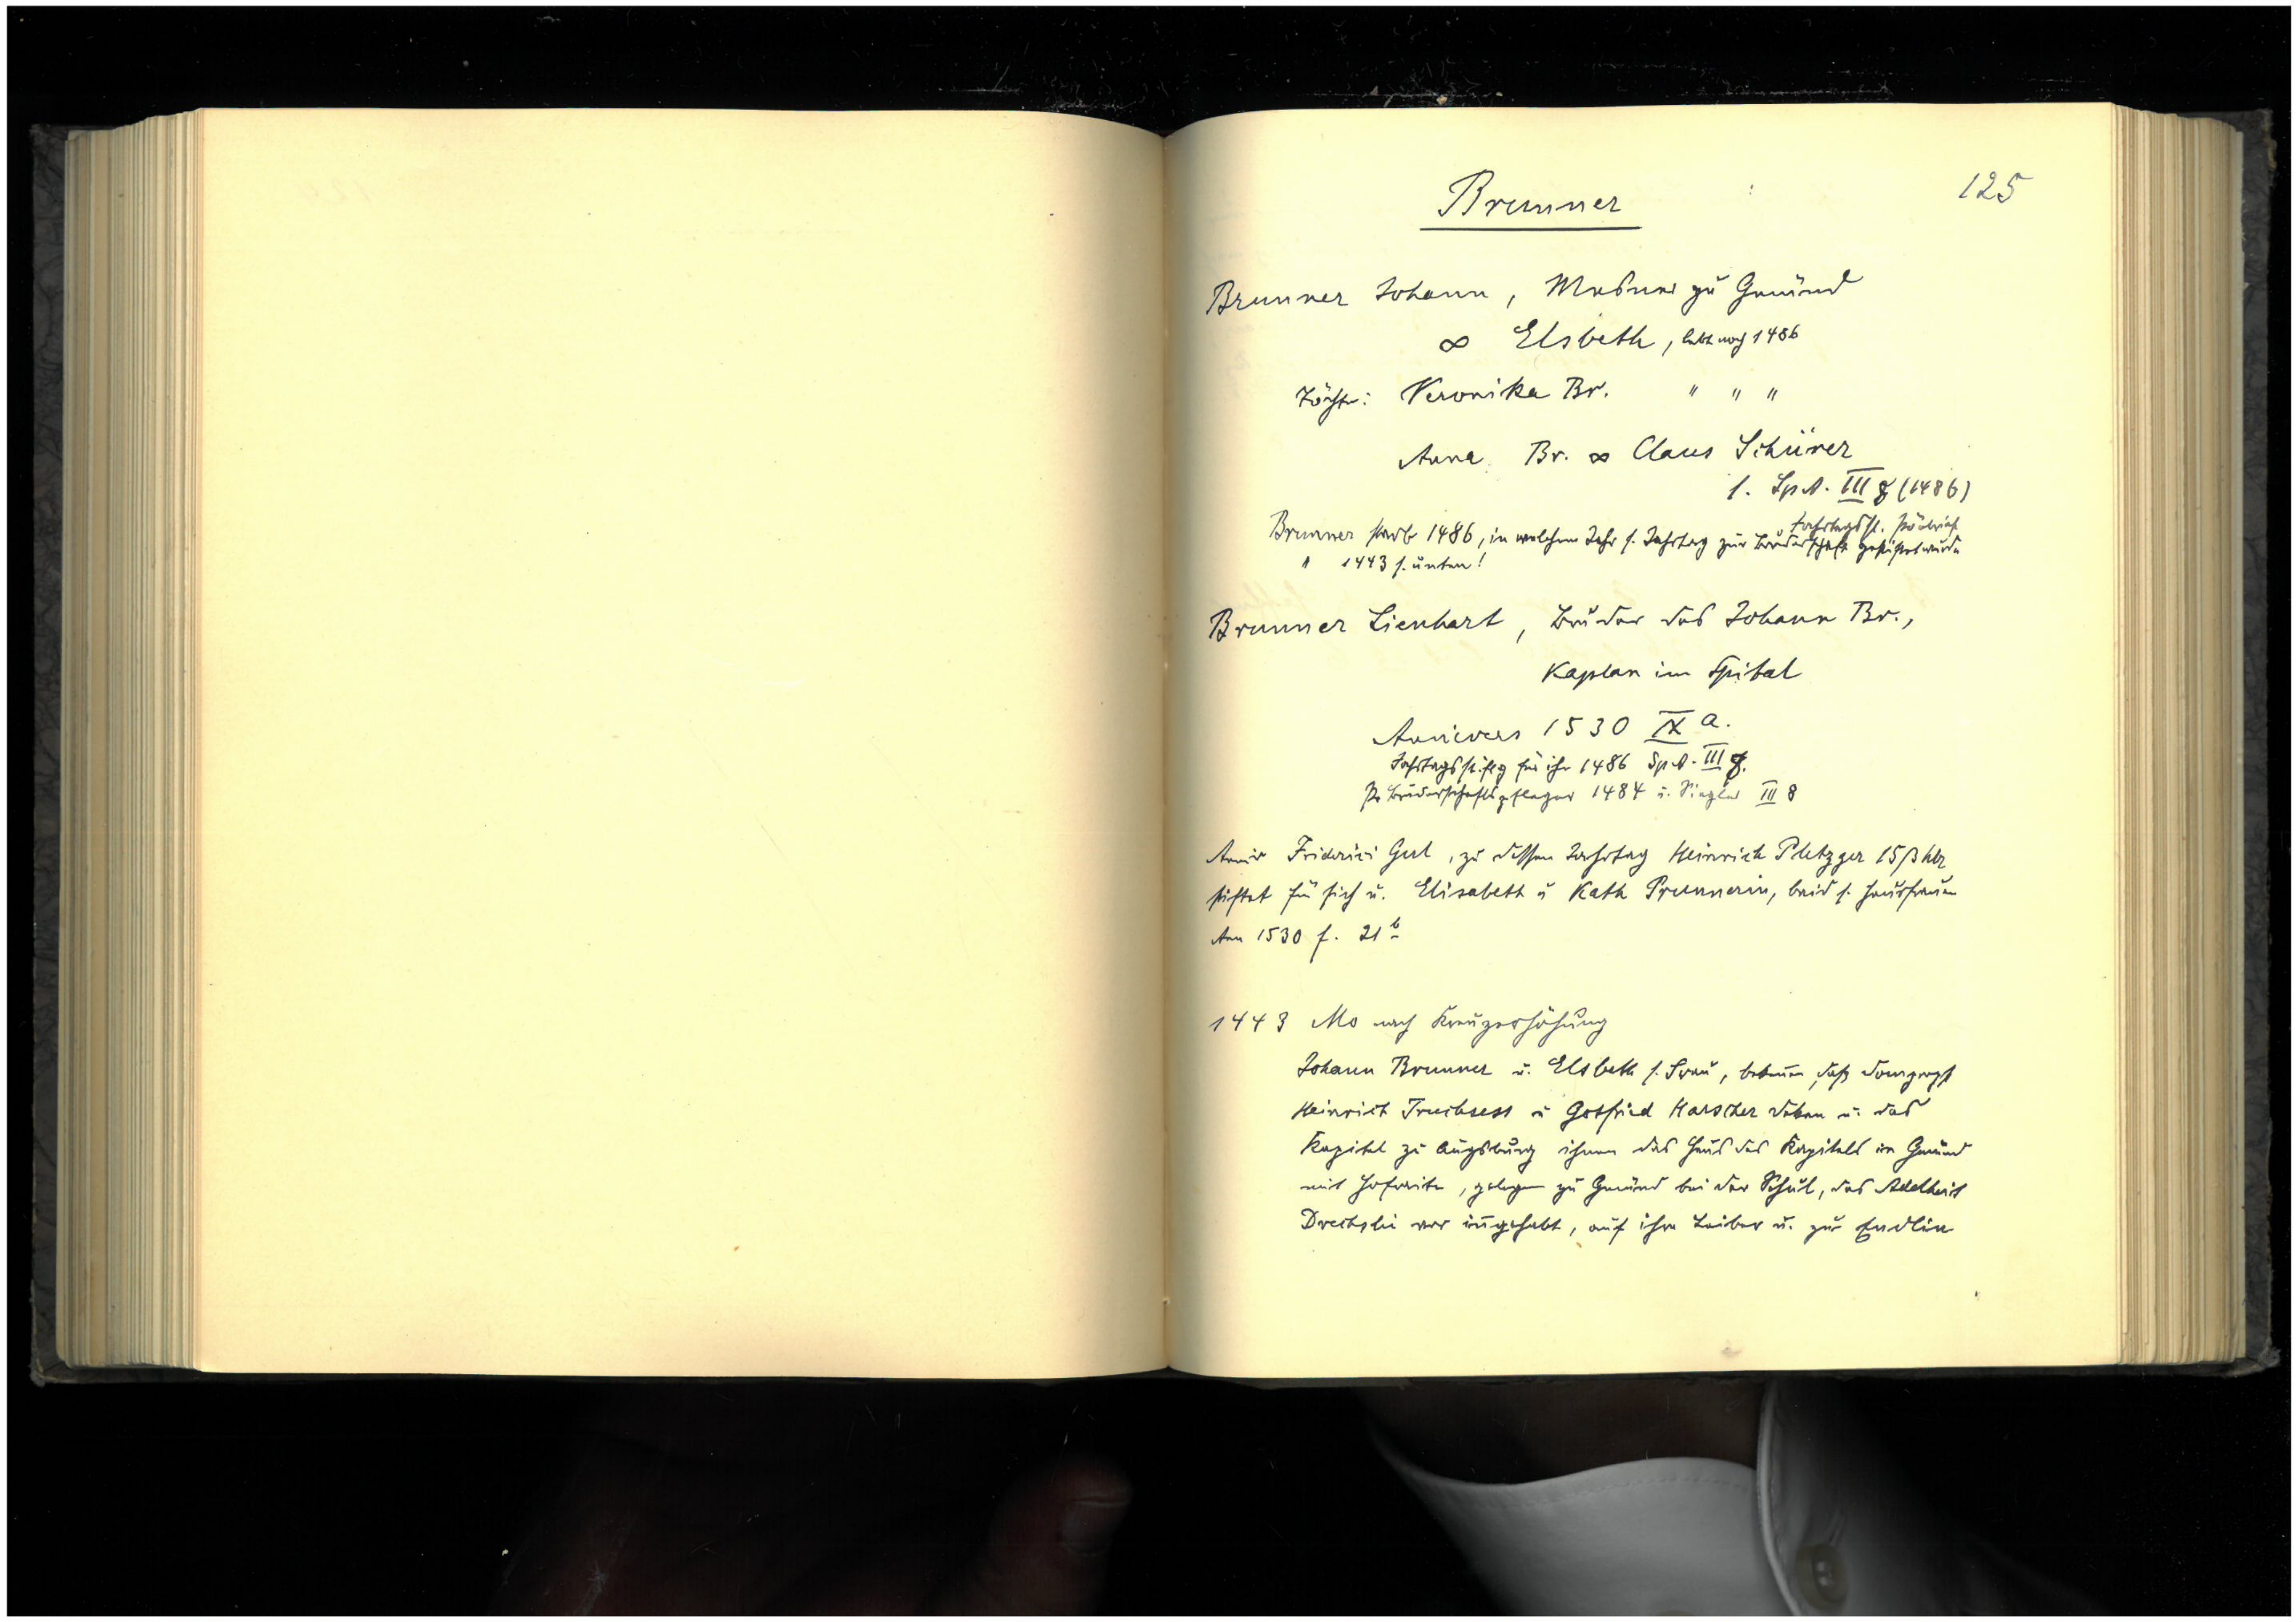 125
Brunner
Brunner Johann, Mesner zu Gmünd
∞ Elsbeth, lebt noch 1486
Töchter: Veronika Br. " " "
Anna Br. ∞ Claus Schürer
s. Sp.A. III 8 (1486)
Jahrtagsst.
Brunner starb 1486, in welchem Jahr s. Jahrtag zur Bruderschaft gestiftet wurde
" 1443 s. unten!
Brunner Lienhart, Bruder des Johann Br.,
Kaplan im Spital
Annivers 1530 IX a.
Jahrtagsstiftg für ihn 1486 Sp.A. III 8.
Bruderschaftspfleger 1484 u. Siegler III 8
Anniv Friderici Gul, zu dessen Jahrtag Heinrich Pletzger 15 ß hlr
stiftet für sich u. Elisabeth u Kath Prunnerin, beid s. Hausfrauen
Ann 1530 f. 21 b
1443 Mo nach Kreuzerhöhung
Johann Brunner u. Elsbeth s. Frau, bekennen, daß Dompropst
Heinrich Truchsess u Gotfried Harscher Dekan u. das
Kapitel zu Augsburg ihnen das Haus des Kapitels in Gmünd
mit Hofreite, gelegen zu Gmünd bei der Schul, das Adelheit
vor inngehabt, auf ihre Leiber u. zur